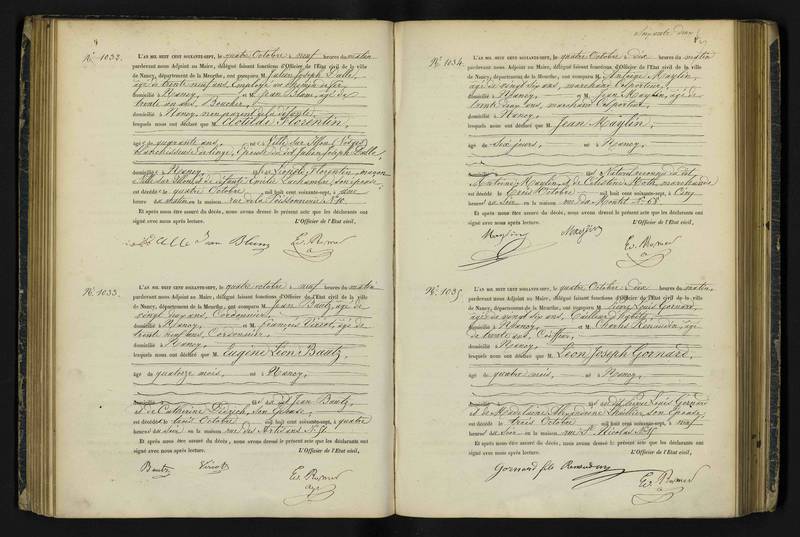 N.º 1032.
L'AN MIL HUIT CENT SOIXANTE-SEPT, le quatre Octobre à neuf heures du matin
pardevant nous Adjoint au Maire, délégué faisant fonctions d'Officier de l'Etat civil de la ville
de Nancy, département de la Meurthe, ont comparu M. Julien Joseph
âgé de trente neuf ans, Employé au chemin de fer,
domicilié à Nancy, et M. Jean Blum, âgé de
ans, Boucher,
domicilié à Nancy, non parent de la défunte,
lesquels nous ont déclaré que M. Clotilde Florentin,
âgé de quarante ans, né à Ville sur Illon (Vosges)
Julien Joseph
domicilié à Nancy, Léopold Florentin, maçon
à Ville sur Illon et de son épouse
est décédé le quatre Octobre mil huit cent soixante-sept, à une
heure du matin en la maison rue de la Poissonnerie N.º 10.
Et après nous être assuré du décès, nous avons dressé le présent acte que les déclarants ont
signé avec nous après lecture. L'Officier de l'Etat civil,
Jean Blum
N.º 1033.
L'AN MIL HUIT CENT SOIXANTE-SEPT, le quatre octobre à neuf heures du matin
pardevant nous Adjoint au Maire, délégué faisant fonctions d'Officier de l'Etat civil de la ville
de Nancy, département de la Meurthe, ont comparu M. Jean Bautz, âgé de
vingt cinq ans, Cordonnier,
domicilié à Nancy, et M. François, âgé de
trente neuf ans, Cordonnier,
domicilié à Nancy,
lesquels nous ont déclaré que M. Eugène Léon Bautz,
âgé de quatorze mois, né à Nancy,
domicilié à Jean Bautz,
et de Catherine, son épouse,
est décédé le trois Octobre mil huit cent soixante-sept, à quatre
heures du soir en la maison rue des Artisans N.º
Et après nous être assuré du décès, nous avons dressé le présent acte que les déclarants ont
signé avec nous après lecture. L'Officier de l'Etat civil,
Bautz
N.º 1034.
L'AN MIL HUIT CENT SOIXANTE-SEPT, le quatre Octobre à dix heures du matin
pardevant nous Adjoint au Maire, délégué faisant fonctions d'Officier de l'Etat civil de la ville
de Nancy, département de la Meurthe, ont comparu M. Maylin,
âgé de vingt six ans, marchand colporteur,
domicilié à Nancy, et M. Jean Maylin, âgé de
trente deux ans, marchand Colporteur,
domicilié à Nancy,
lesquels nous ont déclaré que M. Jean Maylin,
âgé de six jours, né à Nancy,
domicilié à Naturel reconnu
Antoine Maylin, et de Célestine, marchande
est décédé le trois Octobre mil huit cent soixante-sept, à cinq
heures du soir en la maison rue du Montet N.º 68.
Et après nous être assuré du décès, nous avons dressé le présent acte que les déclarants ont
signé avec nous après lecture. L'Officier de l'Etat civil,
N.º 1035.
L'AN MIL HUIT CENT SOIXANTE-SEPT, le quatre Octobre à dix heures du matin,
pardevant nous Adjoint au Maire, délégué faisant fonctions d'Officier de l'Etat civil de la ville
de Nancy, département de la Meurthe, ont comparu M. Louis Gornard,
âgé de vingt six ans,
domicilié à Nancy, et M. Charles, âgé
de trente ans, Coiffeur,
domicilié à Nancy,
lesquels nous ont déclaré que M. Léon Joseph Gornard,
âgé de quatre mois, né à Nancy,
domicilié à Louis Gornard
et de Madeleine Alexandrine son épouse
est décédé le trois Octobre mil huit cent soixante-sept, à neuf
heures du soir en la maison rue St Nicolas N.º
Et après nous être assuré du décès, nous avons dressé le présent acte que les déclarants ont
signé avec nous après lecture. L'Officier de l'Etat civil,
Gornard fils